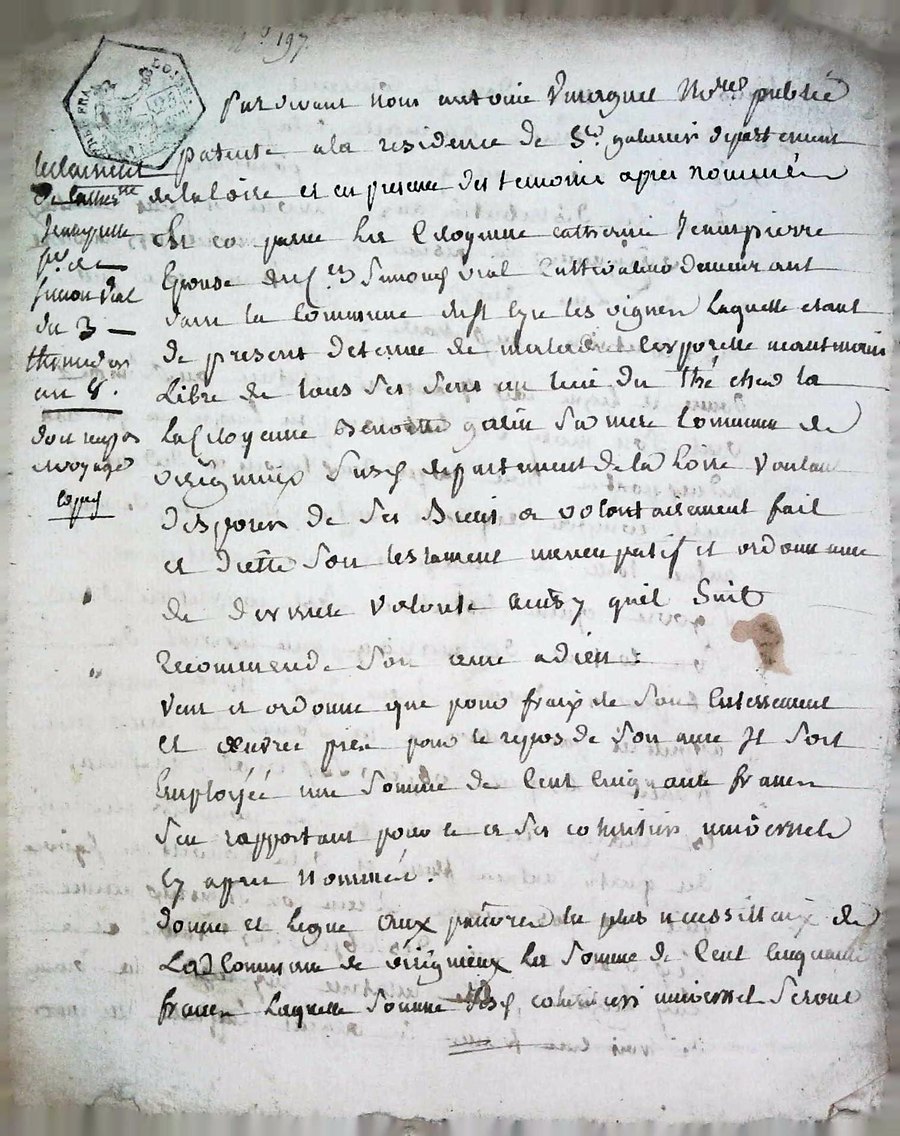 n.o 197
REP. FRA
LOIRE
testament
de Catherine
Jeanpierre
fe. de
Simon Vial
du 3
thermidor
an 8.
Par devant nous antoine nores public
patenté a la residence de St. galmier departement
de la Loire et en presence des temoins apres nommés
Est comparue La Citoyenne catherine Jeanpierre
Epouse du Cen Simon vial Cultivateur demeurant
dans la Commune de St Cyr les vignes Laquelle etant
de present detenue de maladie Corporelle neantmoins
Libre de tous ses sens au lieu du thé chez la
La Citoyenne Benoitte sa mere Commune de
virignieux susd departement de la Loire voulant
disposer de ses Biens a volontairement fait
et dicté son testament nuncupatif et ordonnance
de derniere volonté ainsy quil suit
Recommende son ame a dieu :
Veut et ordonne que pour fraix de son Enterrement
et œuvres pies pour le repos de son ame Il soit
Employéé une somme de Cent Cinquante francs
s'en rapportant pour ce a ses cohéritiers universels
Cy apres nommés.
donne et legue aux pauvres les plus necessitteux de
La d Commune de virignieux La somme de Cent Cinquante
francs Laquelle somme sesd cohéritiers universels seront